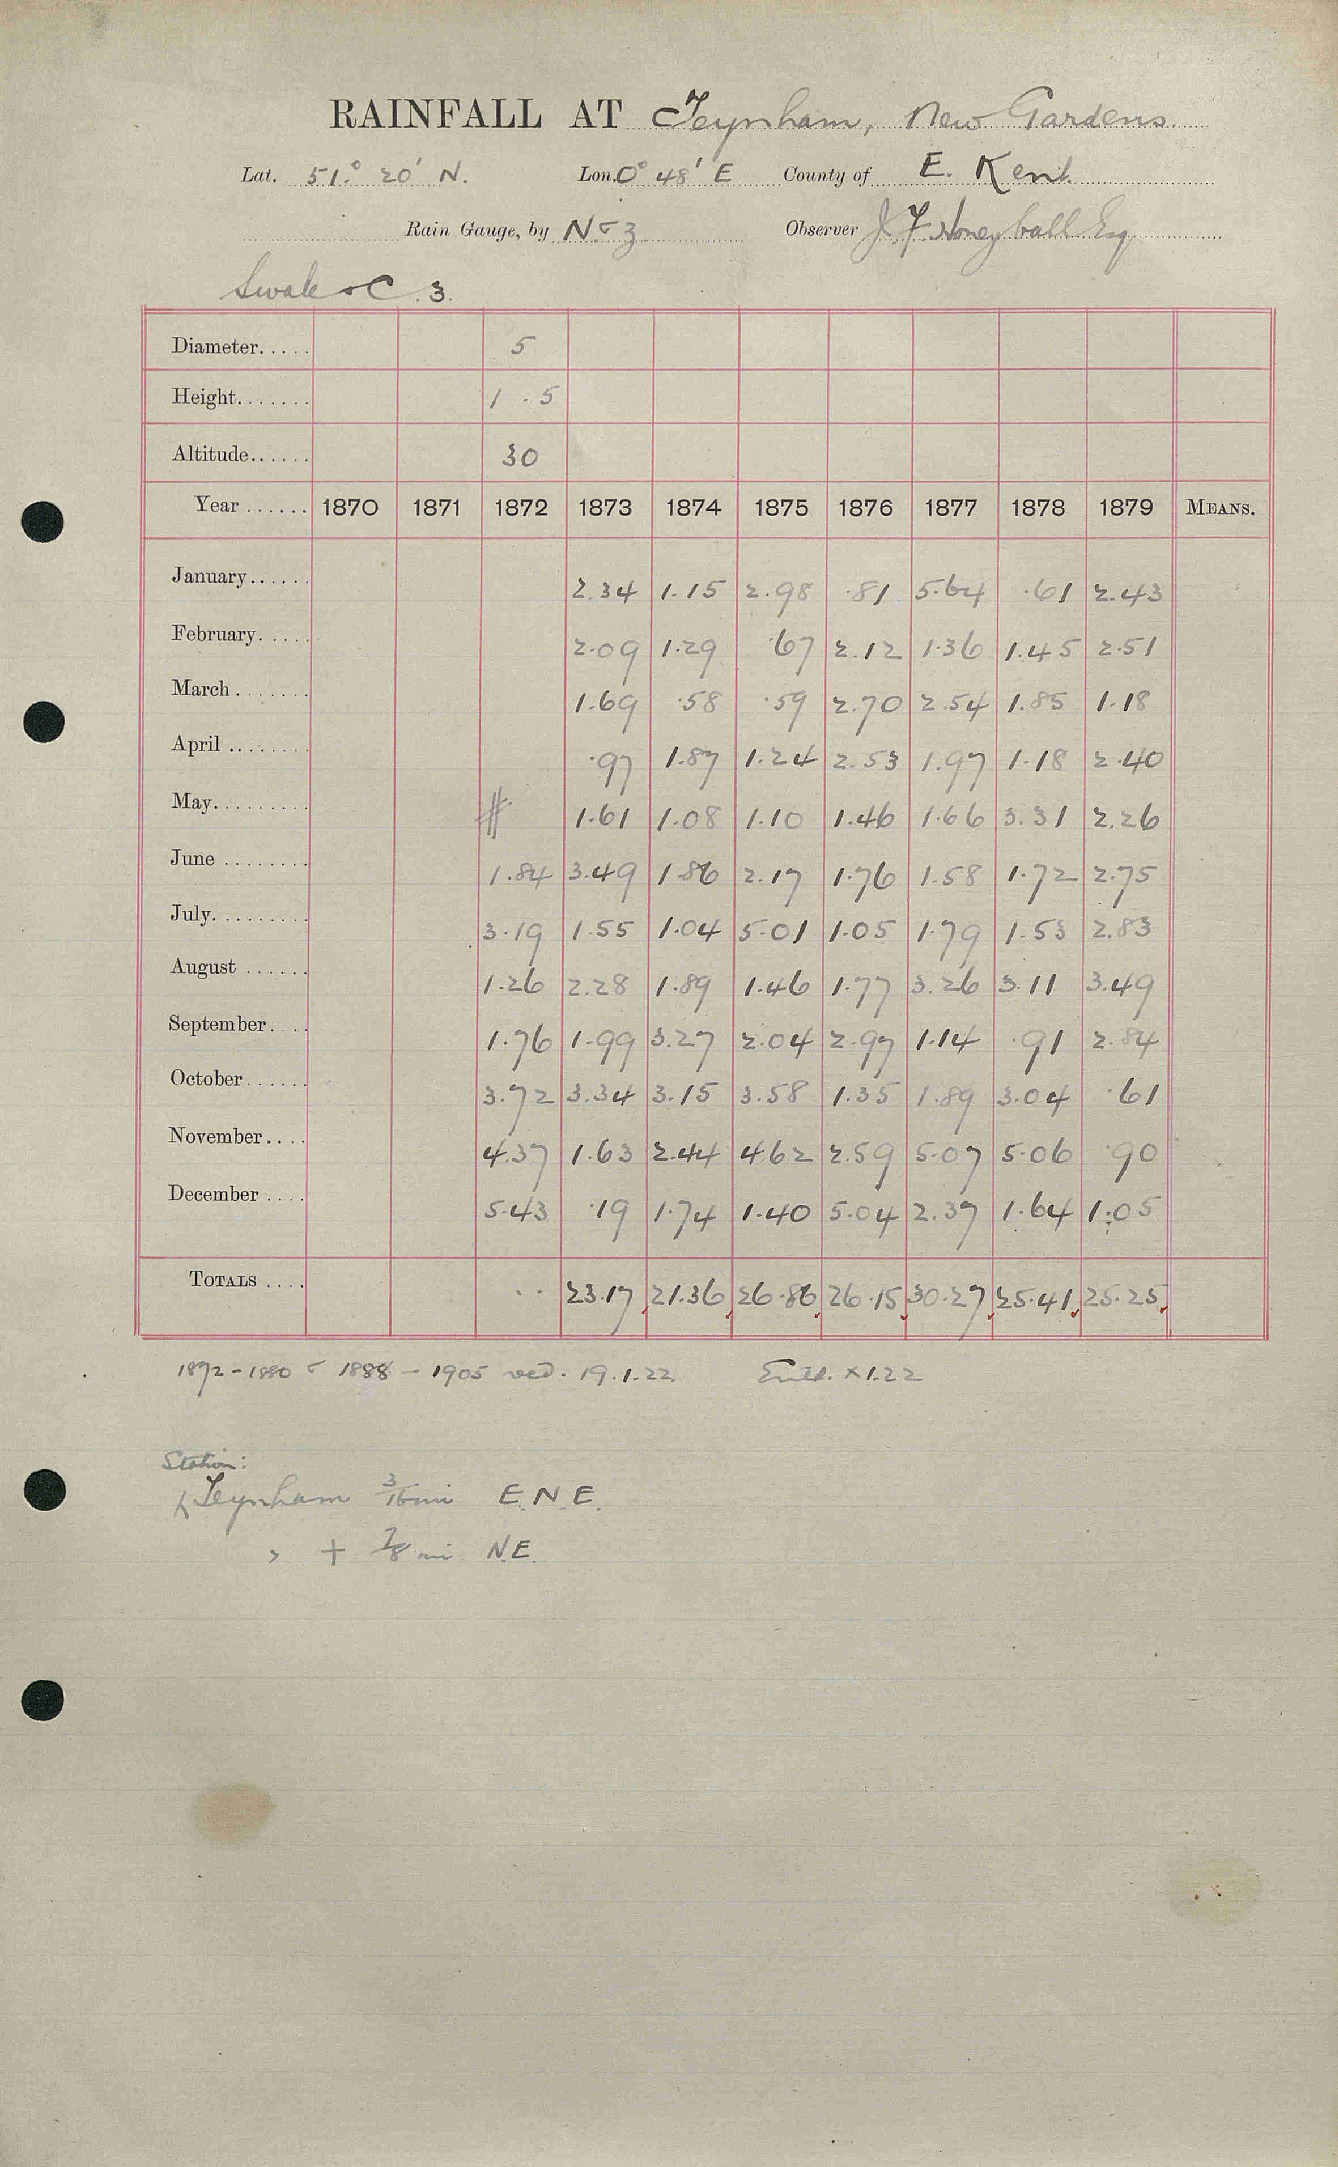 RAINFALL AT Teynham, New Gardens
Lat. 51.° 20' N. Lon. 0° 48' E County of E. Kent
Rain Gauge, by N & Z Observer J F Honeyball Esq
Swale & C. 3.
Diameter..... 5
Height....... 1 . 5
Altitude...... 30
Year ...... 1870 1871 1872 1873 1874 1875 1876 1877 1878 1879 MEANS.
January...... 2.34 1.15 2.98 .81 5.64 .61 2.43
February..... 2.09 1.29 .67 2.12 1.36 1.45 2.51
March ....... 1.69 .58 .59 2.70 2.54 1.85 1.18
April ........ .97 1.87 1.24 2.53 1.97 1.18 2.40
May......... # 1.61 1.08 1.10 1.46 1.66 3.31 2.26
June ........ 1.84 3.49 1.86 2.17 1.76 1.58 1.72 2.75
July......... 3.19 1.55 1.04 5.01 1.05 1.79 1.53 2.83
August ...... 1.26 2.28 1.89 1.46 1.77 3.26 3.11 3.49
September.... 1.76 1.99 3.27 2.04 2.97 1.14 .91 2.84
October...... 3.72 3.34 3.15 3.58 1.35 1.89 3.04 .61
November.... 4.37 1.63 2.44 4.62 2.59 5.07 5.06 .90
December .... 5.43 .19 1.74 1.40 5.04 2.37 1.64 1.05
TOTALS .... .. 23.17 21.36 26.86 26.15 30.27 25.41 25.25
1872 - 1880 & 1888 - 1905 recd. 19.1.22. Entd. x 1.22
Station:
Teynham 3/16 mi E.N.E.
" + 7/8 mi N.E.